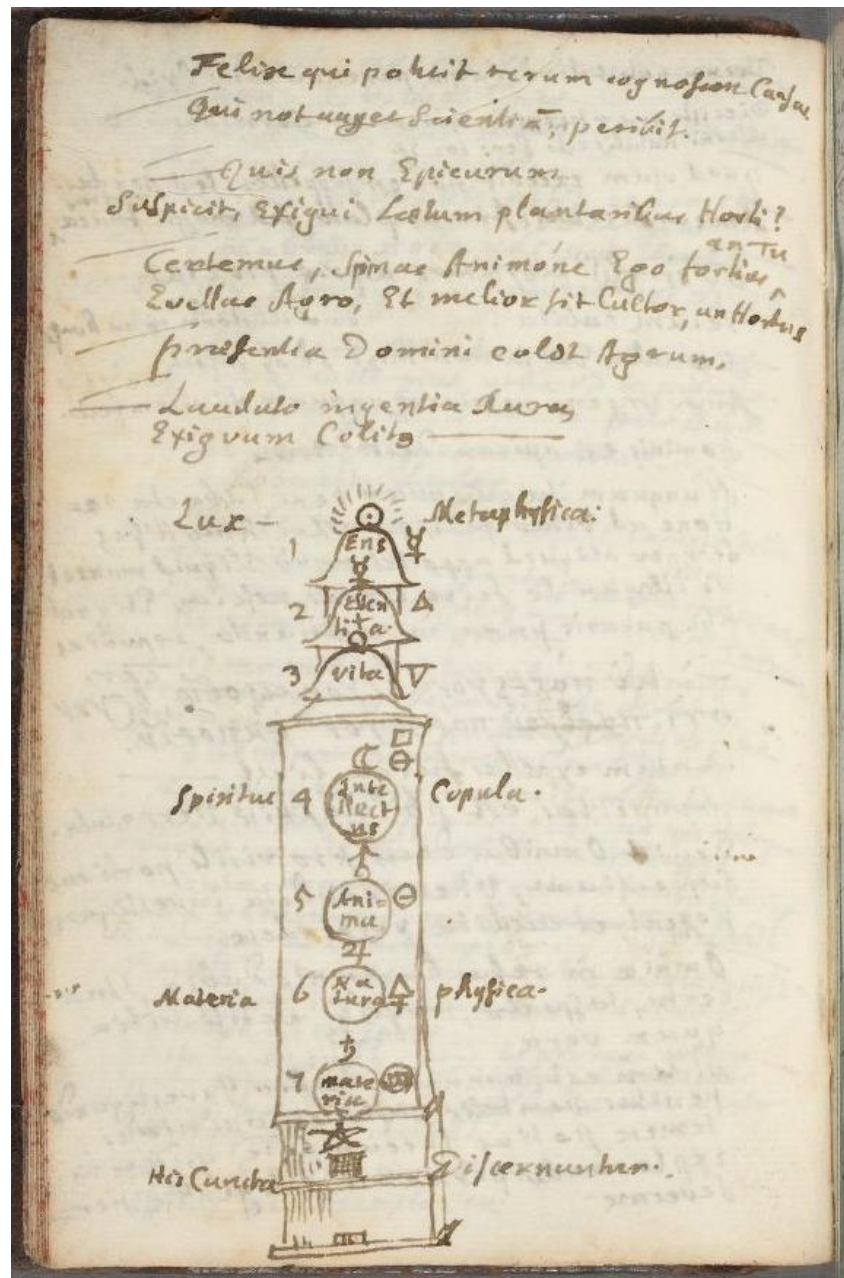 Felix qui potuit rerum cognoscere Causas
Qui not auget Scientiā, peribit.
Quis non Epicurum
Suspicit, Exigui Laetum plantaribus Horti?
an Tu
Certemus, Spinas Animóne Ego fortius ^
Evellas Agro, Et melior sit Cultor, an Hortus
praesentia Domini colit Agrum.
Laudato ingentia Rura,
Exiguum Colito
Lux - Metaphysica:
1 Ens ☿
☿
2 Essen △
titia.
3 vita ▽
□
☾ ⊖
Spiritus 4 Inte Copula.
llect
us
5 Ani= ⊖
ma
♃
Materia 6 Na physica.
tura
♄
7 mate
ria
His Cuncta Discernuntur.